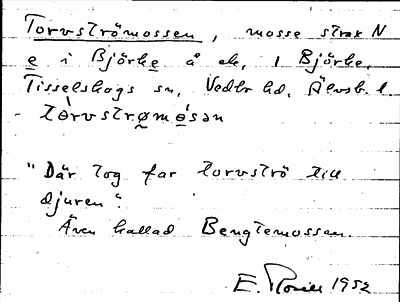 Torvströmossen, mosse strax N
e i Björke å ek. 1 Björke,
Tisselskogs sn, Vedbo hd, Älvsb. l.
- tòrvstrømósan
"Där tog far torvströ till
djuren".
Även kallad Bengtemossen.
E. Rosell 1952